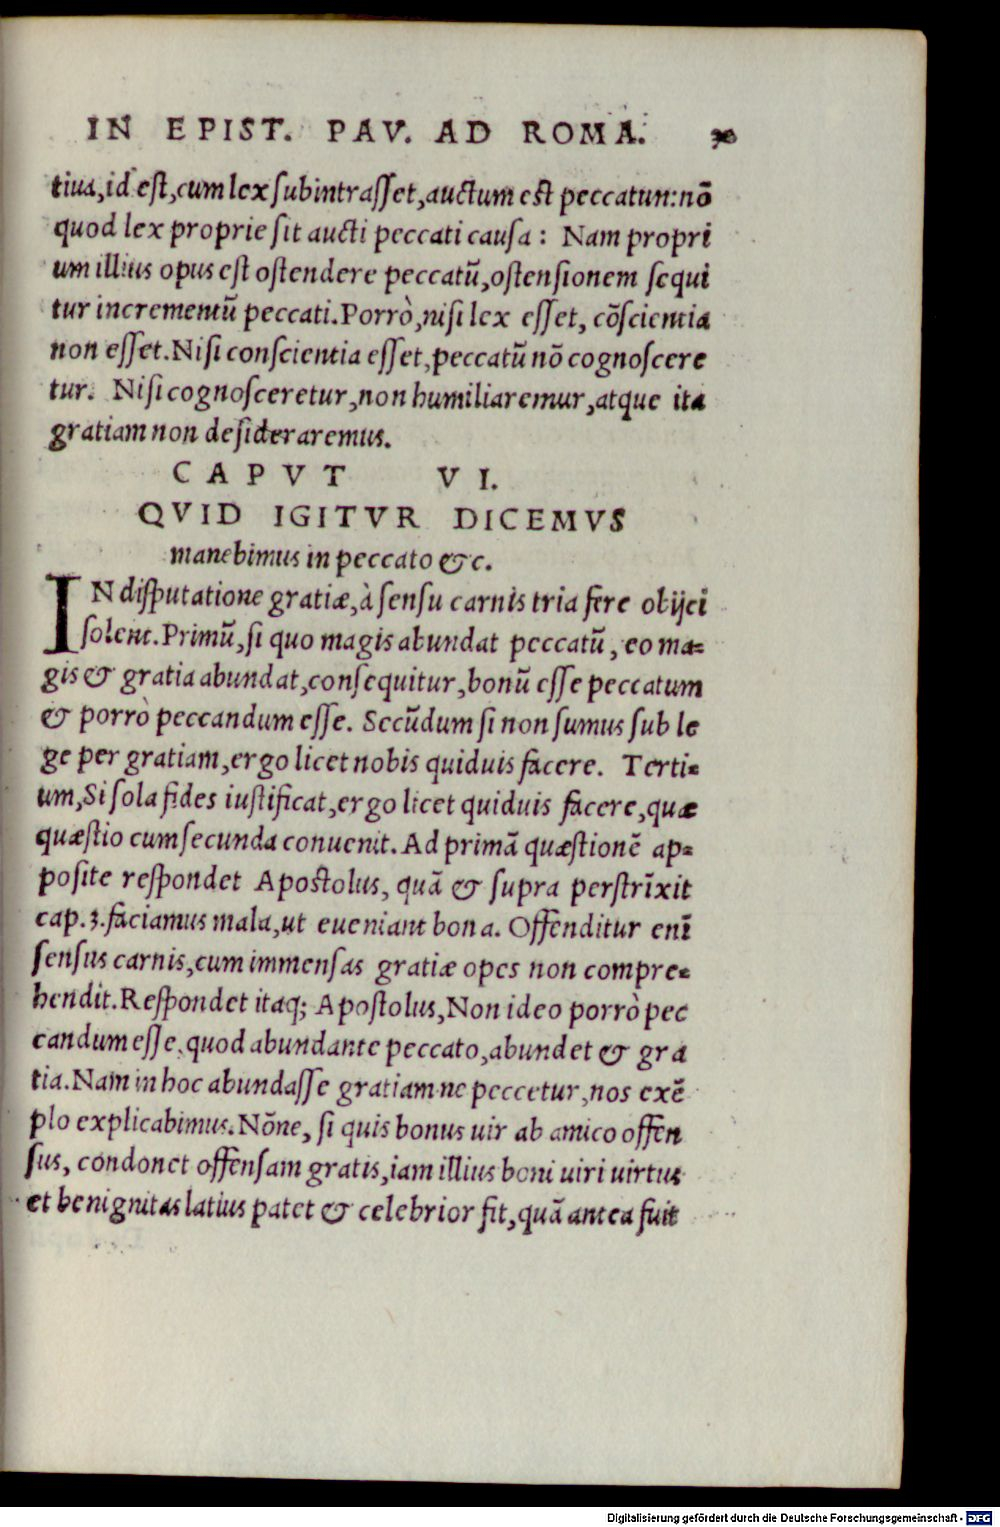 IN EPIST. PAV. AD ROMA. 30
tiua, id est, cum lex subintrasset, auctum est peccatun: nō
quod lex proprie sit aucti peccati causa : Nam propri
um illius opus est ostendere peccatū, ostensionem sequi
tur incrementū peccati. Porrò, nisi lex esset, cōscientia
non esset. Nisi conscientia esset, peccatū nō cognoscere
tur. Nisi cognosceretur, non humiliaremur, atque ita
gratiam non desideraremus.
CAPVT VI.
QVID IGITVR DICEMVS
manebimus in peccato &c.
IN disputatione gratiæ, à sensu carnis tria fere obijci
solent. Primū, si quo magis abundat peccatū, eo ma=
gis & gratia abundat, consequitur, bonū esse peccatum
& porrò peccandum esse. Secūdum si non sumus sub le
ge per gratiam, ergo licet nobis quiduis facere. Terti=
um, Si sola fides iustificat, ergo licet quiduis facere, quæ
quæstio cum secunda conuenit. Ad primā quæstionē ap=
posite respondet Apostolus, quā & supra perstrīxit
cap. 3. faciamus mala, ut eueniant bona. Offenditur enī
sensus carnis, cum immensas gratiæ opes non compre=
hendit. Respondet itaq; Apostolus, Non ideo porrò pec
candum esse, quod abundante peccato, abundet & gra
tia. Nam in hoc abundasse gratiam ne peccetur, nos exē
plo explicabimus. Nōne, si quis bonus uir ab amico offen
sus, condonet offensam gratis, iam illius boni uiri uirtus
et benignitas latius patet & celebrior fit, quā antea fuit
Digitalisierung gefördert durch die Deutsche Forschungsgemeinschaft - DFG